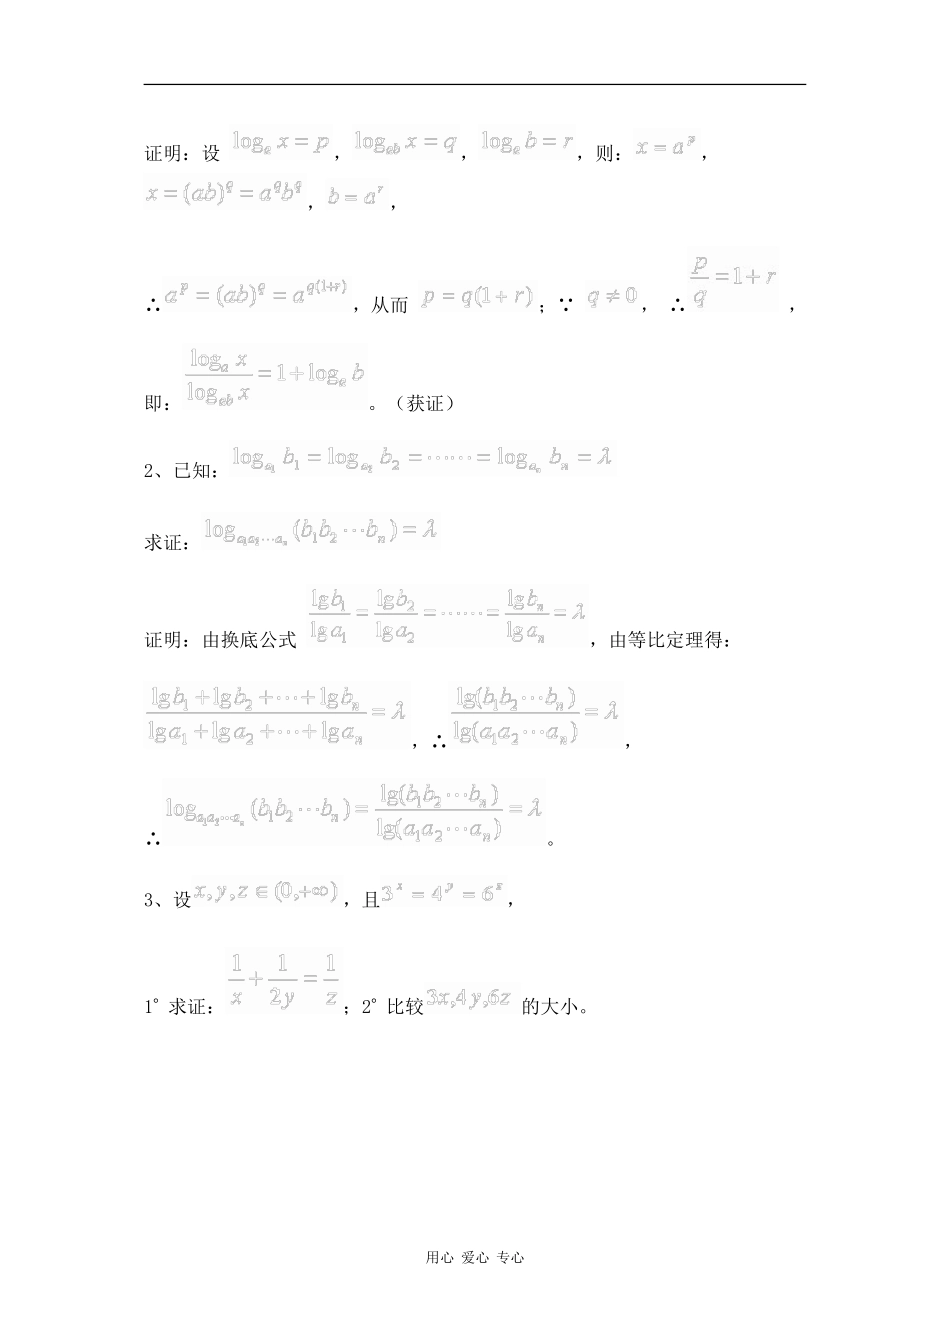 证明：设 logₐ x = p，log_{ab} x = q，logₐ b = r，则：x = a^p，
x = (ab)^q = a^q b^q，b = a^r，
∴ a^p = (ab)^q = a^{q(1+r)}，从而 p = q(1 + r)；∵ q ≠ 0， ∴ p/q = 1 + r ，
即：logₐ x / log_{ab} x = 1 + logₐ b。（获证）
2、已知：log_{a₁} b₁ = log_{a₂} b₂ = ⋯⋯ = log_{aₙ} bₙ = λ
求证：log_{a₁a₂⋯aₙ} (b₁b₂⋯bₙ) = λ
证明：由换底公式 lg b₁ / lg a₁ = lg b₂ / lg a₂ = ⋯⋯ = lg bₙ / lg aₙ = λ，由等比定理得：
(lg b₁ + lg b₂ + ⋯ + lg bₙ) / (lg a₁ + lg a₂ + ⋯ + lg aₙ) = λ，∴ lg(b₁b₂⋯bₙ) / lg(a₁a₂⋯aₙ) = λ，
∴ log_{a₁a₂⋯aₙ} (b₁b₂⋯bₙ) = lg(b₁b₂⋯bₙ) / lg(a₁a₂⋯aₙ) = λ。
3、设 x, y, z ∈ (0,+∞)，且 3^x = 4^y = 6^z，
1° 求证：1/x + 1/2y = 1/z；2° 比较 3x,4y,6z 的大小。
用心 爱心 专心